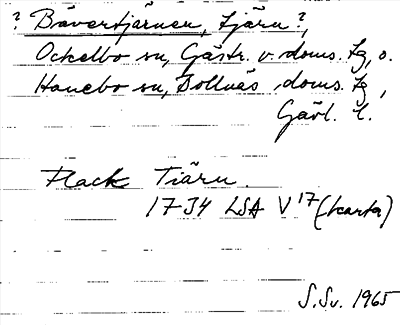 ? Bävertjärnen, tjärn?,
Ockelbo sn, Gästr. v. doms. tg, o.
Hanebo sn, Bollnäs doms. tg,
Gävl. l.
Flack Tiärn.
1734 LSA V 17 (karta)
S.Sv. 1965